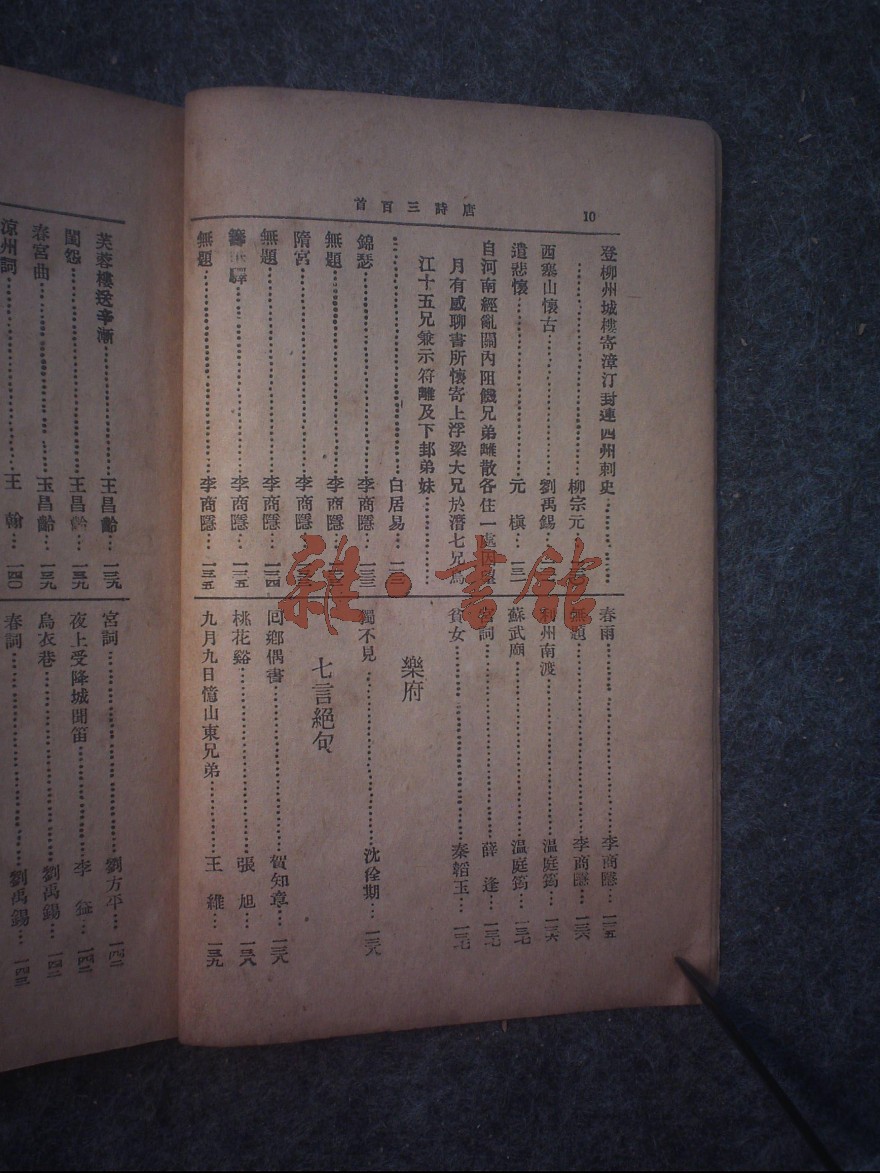 10
唐詩三百首
登柳州城樓寄漳汀封連四州刺史
柳宗元
西塞山懷古 劉禹錫
遣悲懷 元稹 一三一
自河南經亂關內阻饑兄弟離散各在一處因望
月有感聊書所懷寄上浮梁大兄於潛七兄烏
江十五兄兼示符離及下邽弟妹
白居易
錦瑟 李商隱
無題 李商隱
隋宮 李商隱
無題 李商隱 一三四
李商隱
無題 李商隱 一三五
春雨 李商隱 一三五
無題 李商隱 一三六
利州南渡 溫庭筠 一三六
蘇武廟 溫庭筠 一三七
宮詞 薛逢 一三七
貧女 秦韜玉 一三七
樂府
獨不見 沈佺期 一三八
七言絕句
囘鄉偶書 賀知章 一三八
桃花谿 張旭 一三八
九月九日憶山東兄弟 王維 一三九
芙蓉樓送辛漸 王昌齡 一三九
閨怨 王昌齡 一三九
春宮曲 王昌齡 一三九
涼州詞 王翰 一四〇
宮詞 劉方平 一四二
夜上受降城聞笛 李益 一四二
烏衣巷 劉禹錫 一四二
春詞 劉禹錫 一四三
雜·書館